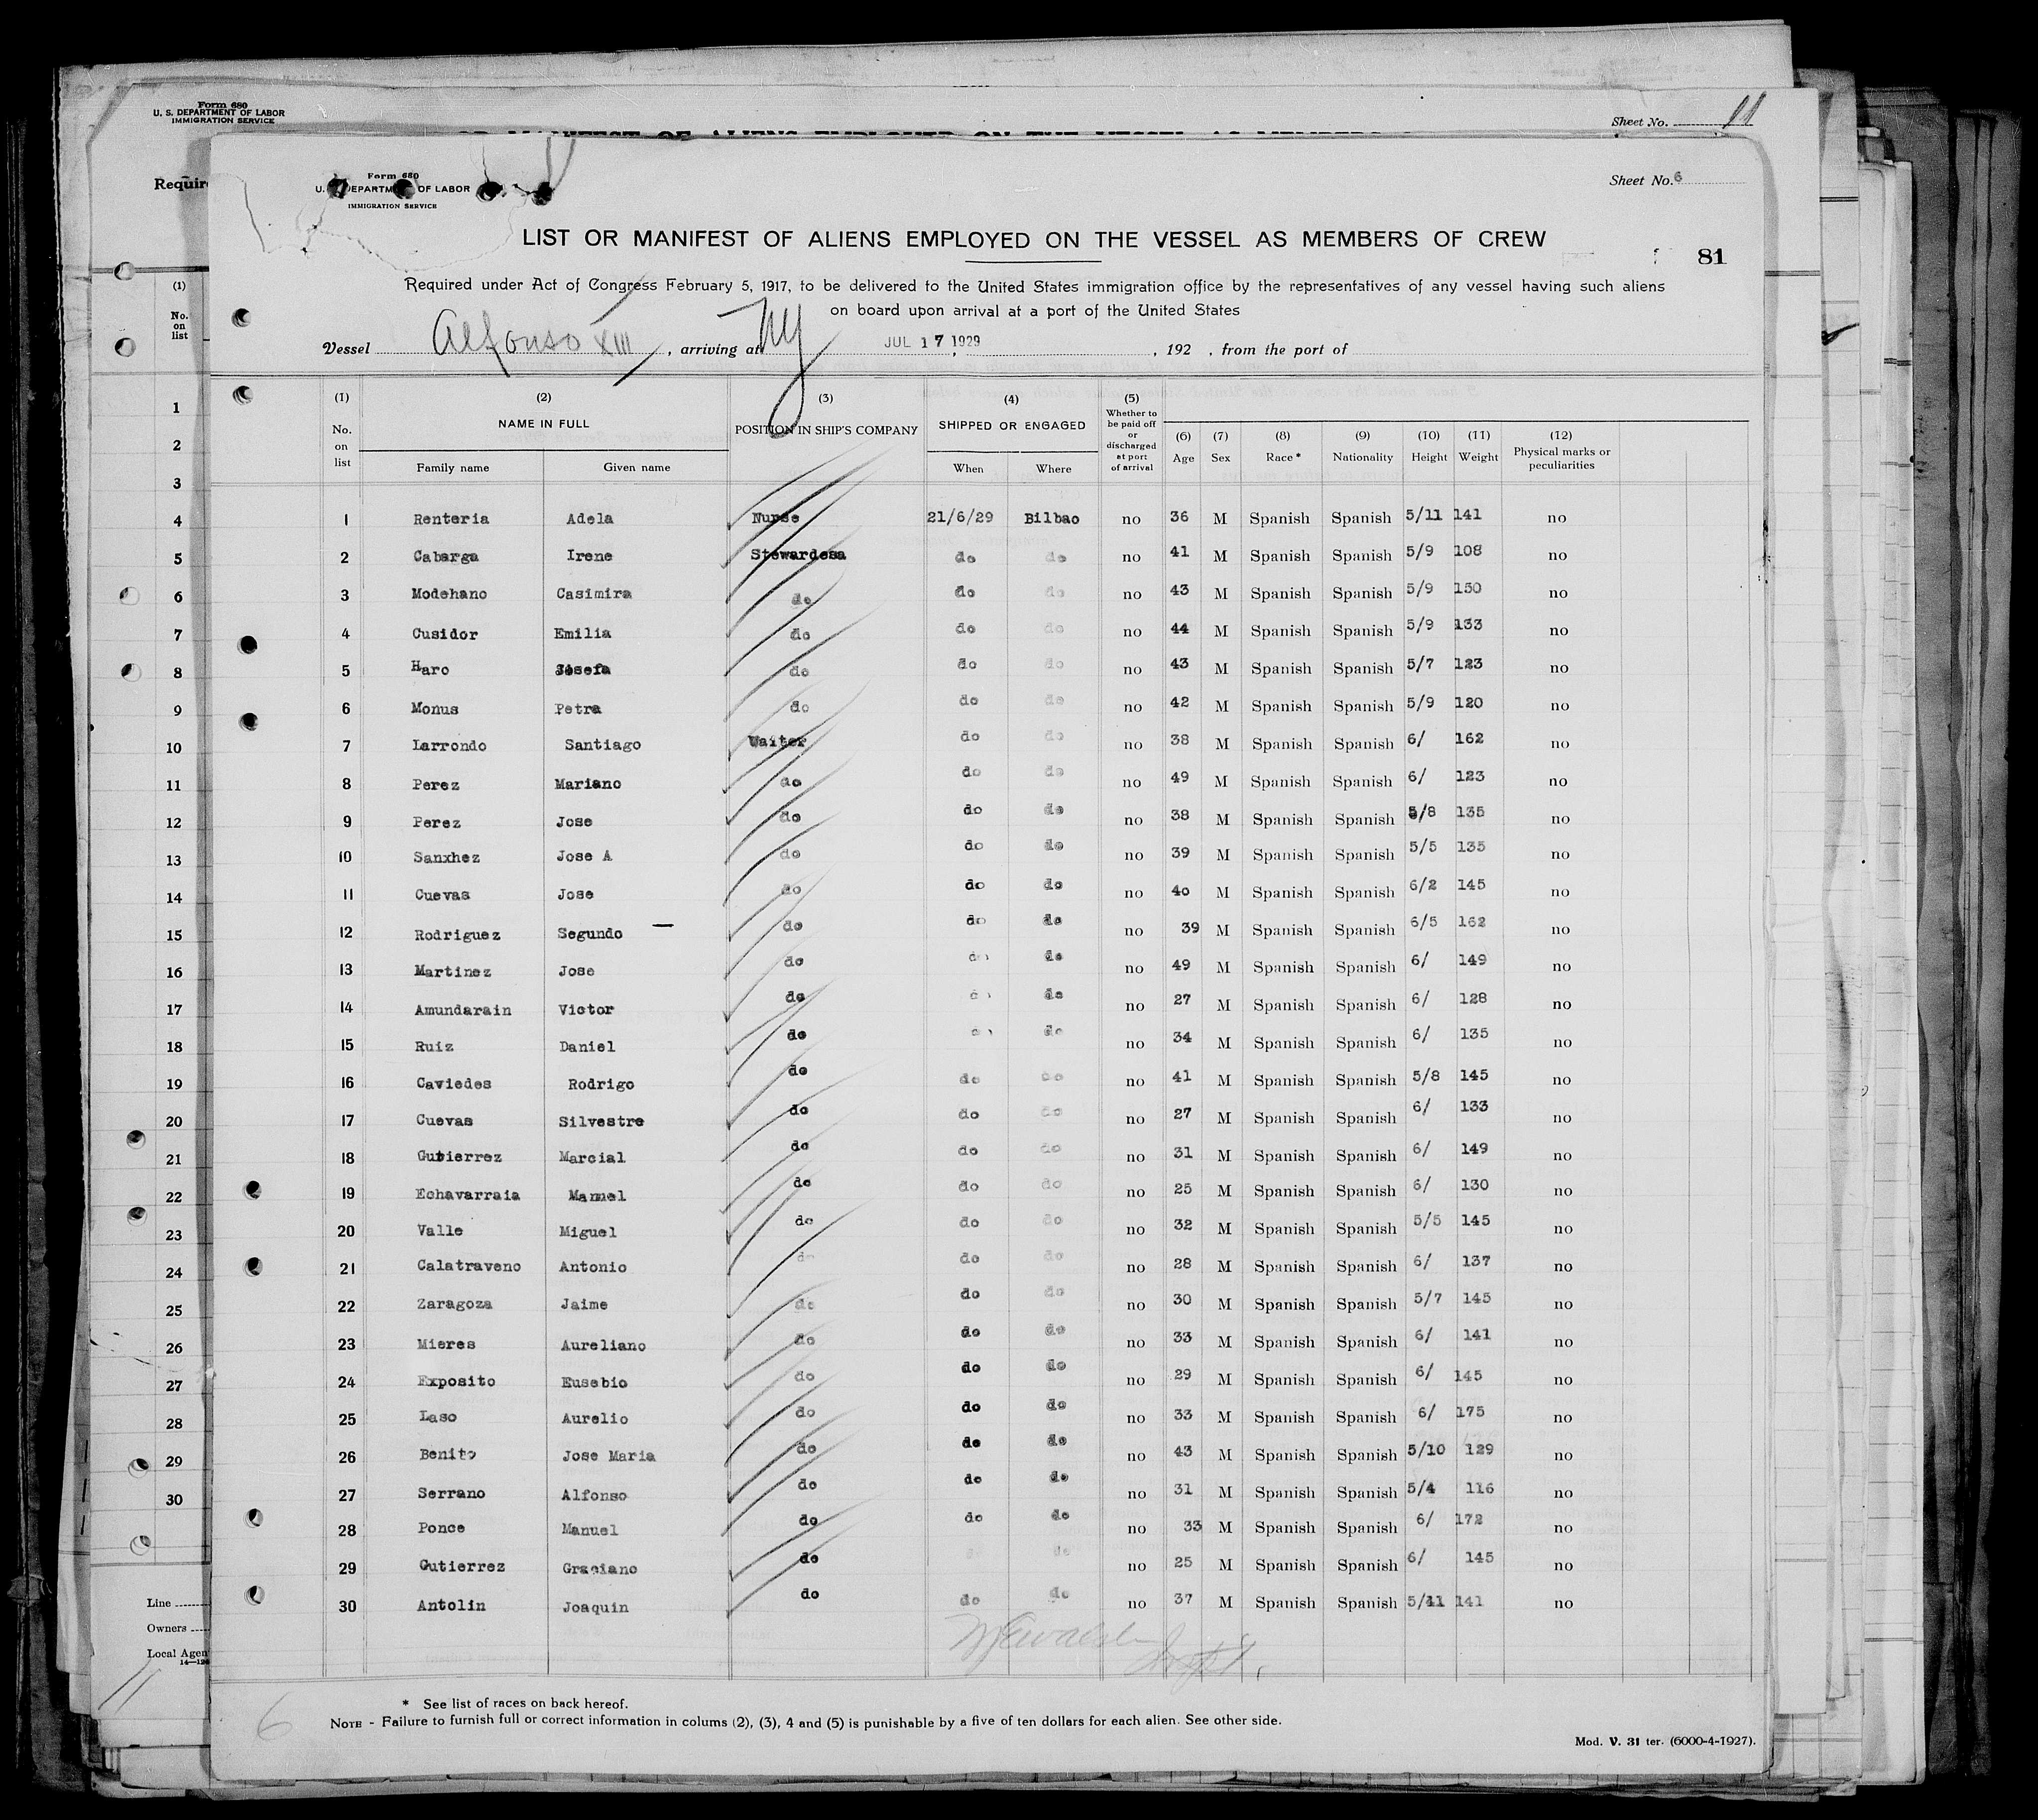 Form 680
U. S. DEPARTMENT OF LABOR
IMMIGRATION SERVICE
Sheet No. 11
OR MANIFEST OF ALIENS EMPLOYED ON THE VESSEL AS MEMBERS
Require
Form 680
U. S. DEPARTMENT OF LABOR
IMMIGRATION SERVICE
Sheet No. 6
LIST OR MANIFEST OF ALIENS EMPLOYED ON THE VESSEL AS MEMBERS OF CREW
81
Required under Act of Congress February 5, 1917, to be delivered to the United States immigration office by the representatives of any vessel having such aliens
on board upon arrival at a port of the United States
Vessel Alfonso XIII, arriving at Ny JUL 17 1929, 192 , from the port of
(1) No. on list (2) NAME IN FULL Family name Given name (3) POSITION IN SHIP'S COMPANY (4) SHIPPED OR ENGAGED When Where (5) Whether to be paid off or discharged at port of arrival (6) Age (7) Sex (8) Race * (9) Nationality (10) Height (11) Weight (12) Physical marks or peculiarities
1 Renteria Adela Nurse 21/6/29 Bilbao no 36 M Spanish Spanish 5/11 141 no
2 Cabarga Irene Stewardesa do do no 41 M Spanish Spanish 5/9 108 no
3 Modehano Casimira do do do no 43 M Spanish Spanish 5/9 150 no
4 Cusidor Emilia do do do no 44 M Spanish Spanish 5/9 133 no
5 Haro Josefa do do do no 43 M Spanish Spanish 5/7 123 no
6 Monus Petra do do do no 42 M Spanish Spanish 5/9 120 no
7 Larrondo Santiago Waiter do do no 38 M Spanish Spanish 6/ 162 no
8 Perez Mariano do do do no 49 M Spanish Spanish 6/ 123 no
9 Perez Jose do do do no 38 M Spanish Spanish 5/8 135 no
10 Sanxhez Jose A do do do no 39 M Spanish Spanish 5/5 135 no
11 Cuevas Jose do do do no 40 M Spanish Spanish 6/2 145 no
12 Rodriguez Segundo — do do do no 39 M Spanish Spanish 6/5 162 no
13 Martinez Jose do do do no 49 M Spanish Spanish 6/ 149 no
14 Amundarain Victor do do do no 27 M Spanish Spanish 6/ 128 no
15 Ruiz Daniel do do do no 34 M Spanish Spanish 6/ 135 no
16 Caviedes Rodrigo do do do no 41 M Spanish Spanish 5/8 145 no
17 Cuevas Silvestre do do do no 27 M Spanish Spanish 6/ 133 no
18 Gutierrez Marcial do do do no 31 M Spanish Spanish 6/ 149 no
19 Echavarraia Manuel do do do no 25 M Spanish Spanish 6/ 130 no
20 Valle Miguel do do do no 32 M Spanish Spanish 5/5 145 no
21 Calatraveno Antonio do do do no 28 M Spanish Spanish 6/ 137 no
22 Zaragoza Jaime do do do no 30 M Spanish Spanish 5/7 145 no
23 Mieres Aureliano do do do no 33 M Spanish Spanish 6/ 141 no
24 Exposito Eusebio do do do no 29 M Spanish Spanish 6/ 145 no
25 Laso Aurelio do do do no 33 M Spanish Spanish 6/ 175 no
26 Benito Jose Maria do do do no 43 M Spanish Spanish 5/10 129 no
27 Serrano Alfonso do do do no 31 M Spanish Spanish 5/4 116 no
28 Ponce Manuel do do do no 33 M Spanish Spanish 6/ 172 no
29 Gutierrez Graciano do do no 25 M Spanish Spanish 6/ 145 no
30 Antolin Joaquin do do do no 37 M Spanish Spanish 5/11 141 no
* See list of races on back hereof.
NOTE - Failure to furnish full or correct information in colums (2), (3), 4 and (5) is punishable by a five of ten dollars for each alien. See other side.
Mod. V. 31 ter. (6000-4-1927).
6
(1)
No.
on
list
1
2
3
4
5
6
7
8
9
10
11
12
13
14
15
16
17
18
19
20
21
22
23
24
25
26
27
28
29
30
Line
Owners
Local Agen
11